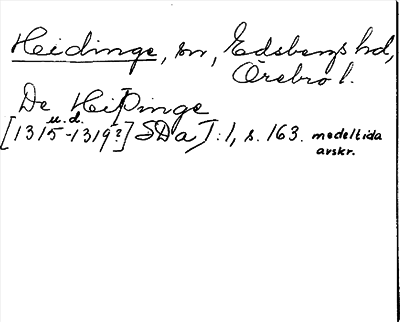 Heidinge, sn, Edsbergs hd,
Örebro l.
De Heþinge
u.d.
[1315-1319?] SDa I:1, s. 163. medeltida
avskr.